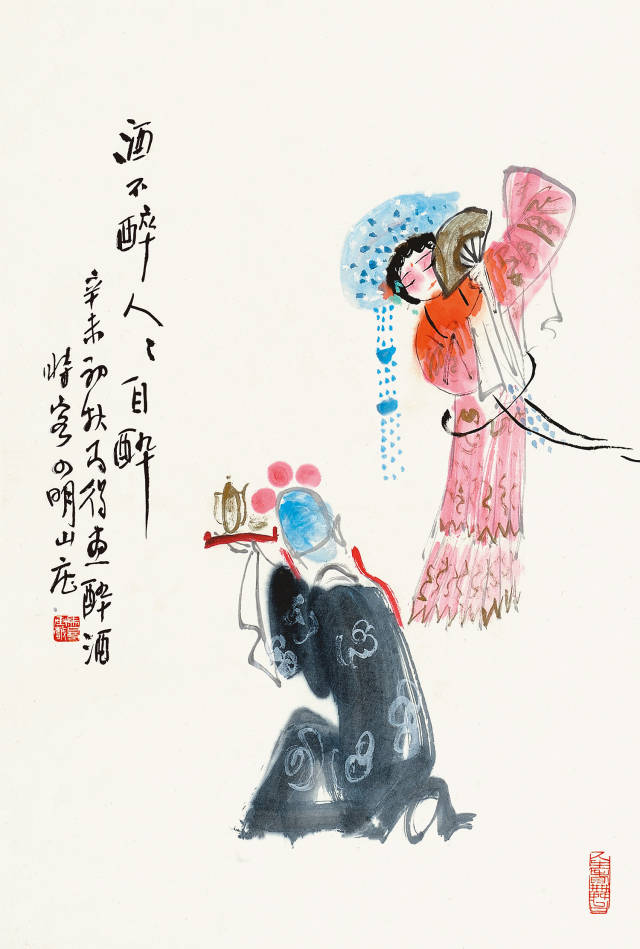 酒不醉人々自醉
辛未初秋马得画醉酒
時客四明山庄